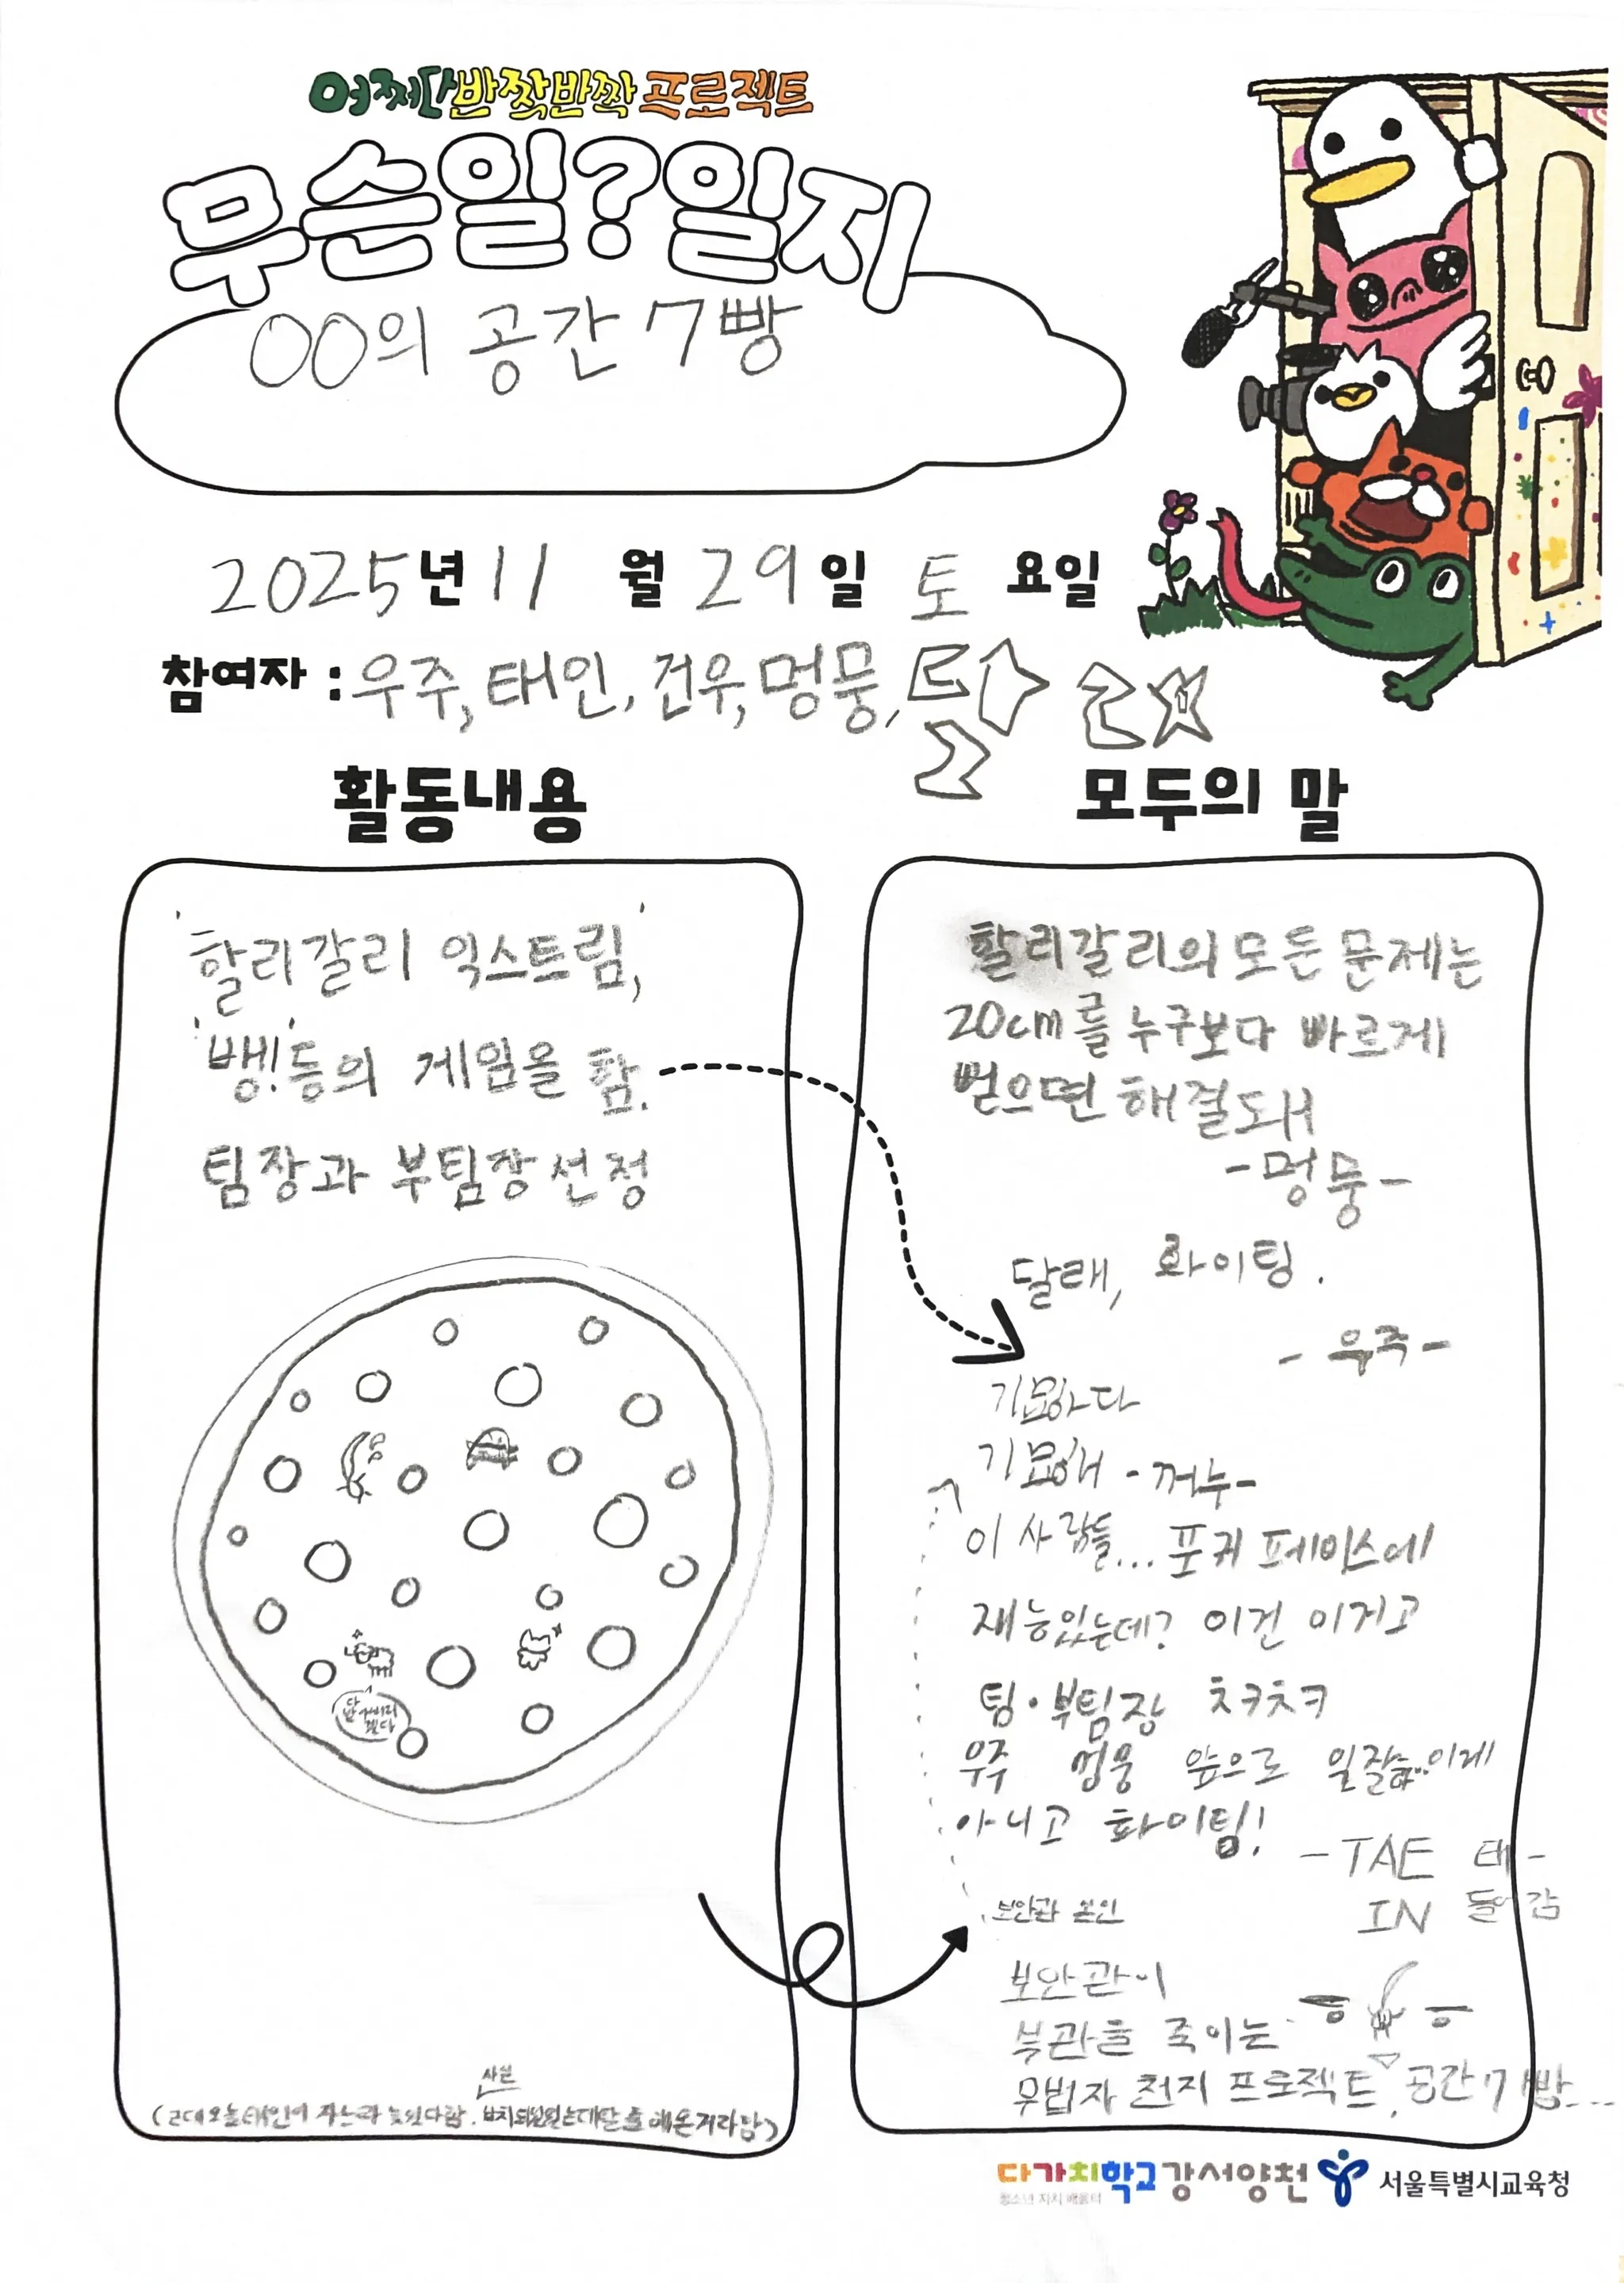 어쩌다반짝반짝프로젝트
무슨일?일지
OO의 공간 7빵
2025년 11 월 29일 토 요일
참여자 : 우주, 태인, 건우, 멍뭉, 달래
활동내용
'할리갈리 익스트림,'
'뱅!'등의 게임을 함.
팀장과 부팀장 선정
모두의 말
할리갈리의 모든 문제는
20cm를 누구보다 빠르게
뻗으면 해결돼
-멍뭉-
달래, 화이팅.
- 우주-
기묘하다
기묘해 -꺼누-
이 사람들... 포커 페이스에
재능있는데? 이건 이거고
팀·부팀장 ㅊㅋㅊㅋ
우주 멍뭉 앞으로 이게
아니고 화이팅!
-TAE 태-
IN 들어감
보안관 본인
보안관이
부관을 죽이는
무법자 천지 프로젝트, 공간 7빵...
사실
(근데 오늘 태인이 자느라 늦었다함.
다가치학교강서양천
청소년 자치 배움터
서울특별시교육청